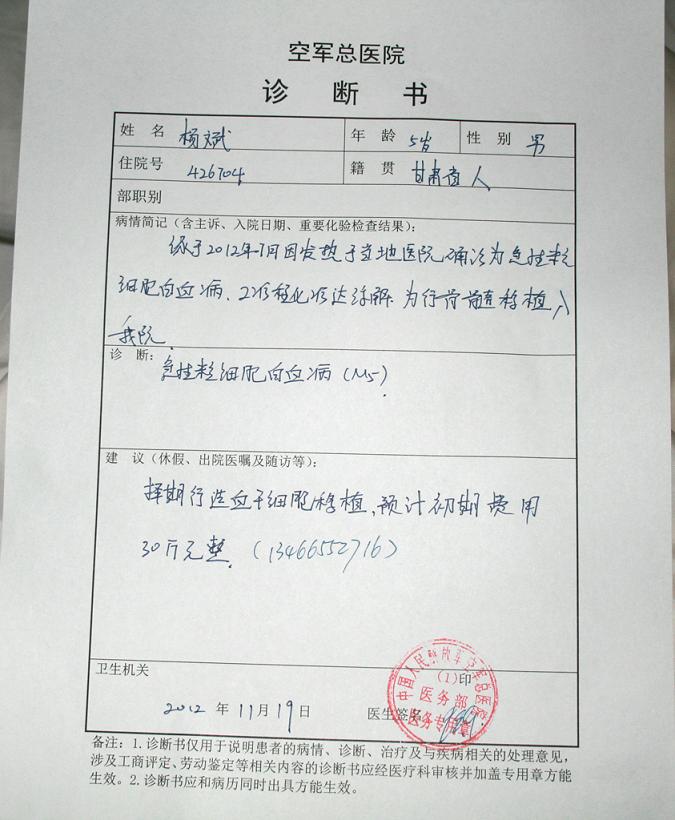 空军总医院
诊 断 书
姓 名 杨斌 年 龄 5岁 性 别 男
住院号 426704 籍 贯 甘肃省人
部职别
病情简记（含主诉、入院日期、重要化验检查结果）：
缘于2012年7月因发热于当地医院确诊为急性粒
细胞白血病、2次程化疗达缓解 为行骨髓移植入
我院.
诊 断：
急性粒细胞白血病（M5）.
建 议（休假、出院医嘱及随访等）：
择期行造血干细胞移植，预计初期费用
30万元整.（13466552716）
卫生机关
中国人民解放军空军总医院
(1)印
医务部
医务专用章
2012 年 11月 19日 医生签名
备注：1.诊断书仅用于说明患者的病情、诊断、治疗及与疾病相关的处理意见，
涉及工商评定、劳动鉴定等相关内容的诊断书应经医疗科审核并加盖专用章方能
生效。2.诊断书应和病历同时出具方能生效。